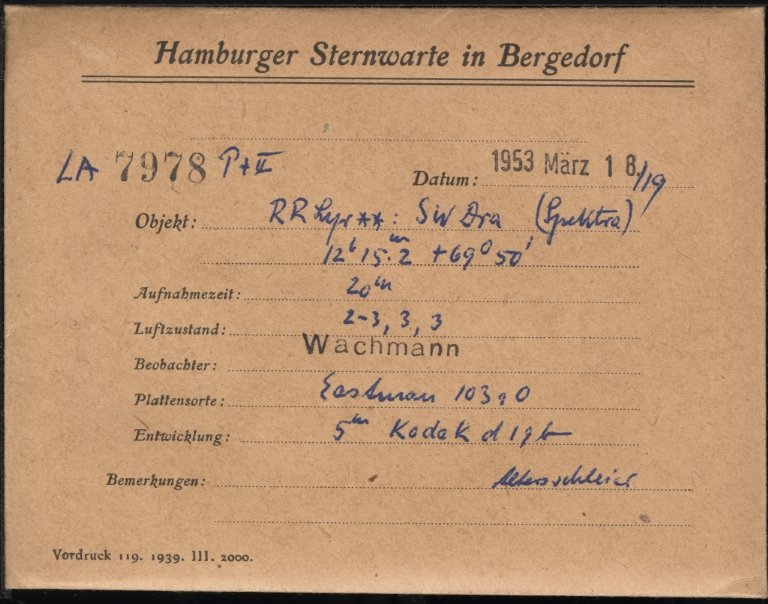 Hamburger Sternwarte in Bergedorf
LA 7978 P+II
Datum: 1953 März 18./19
Objekt: RR Lyr**: SW Dra (Spektra)
12ʰ 15.ᵐ2 +69⁰ 50'
Aufnahmezeit: 20ᵐ
Luftzustand: 2-3, 3, 3
Beobachter: Wachmann
Plattensorte: Eastman 103aO
Entwicklung: 5ᵐ Kodak d19b
Bemerkungen: Altersschleier
Vordruck 119. 1939. III. 2000.